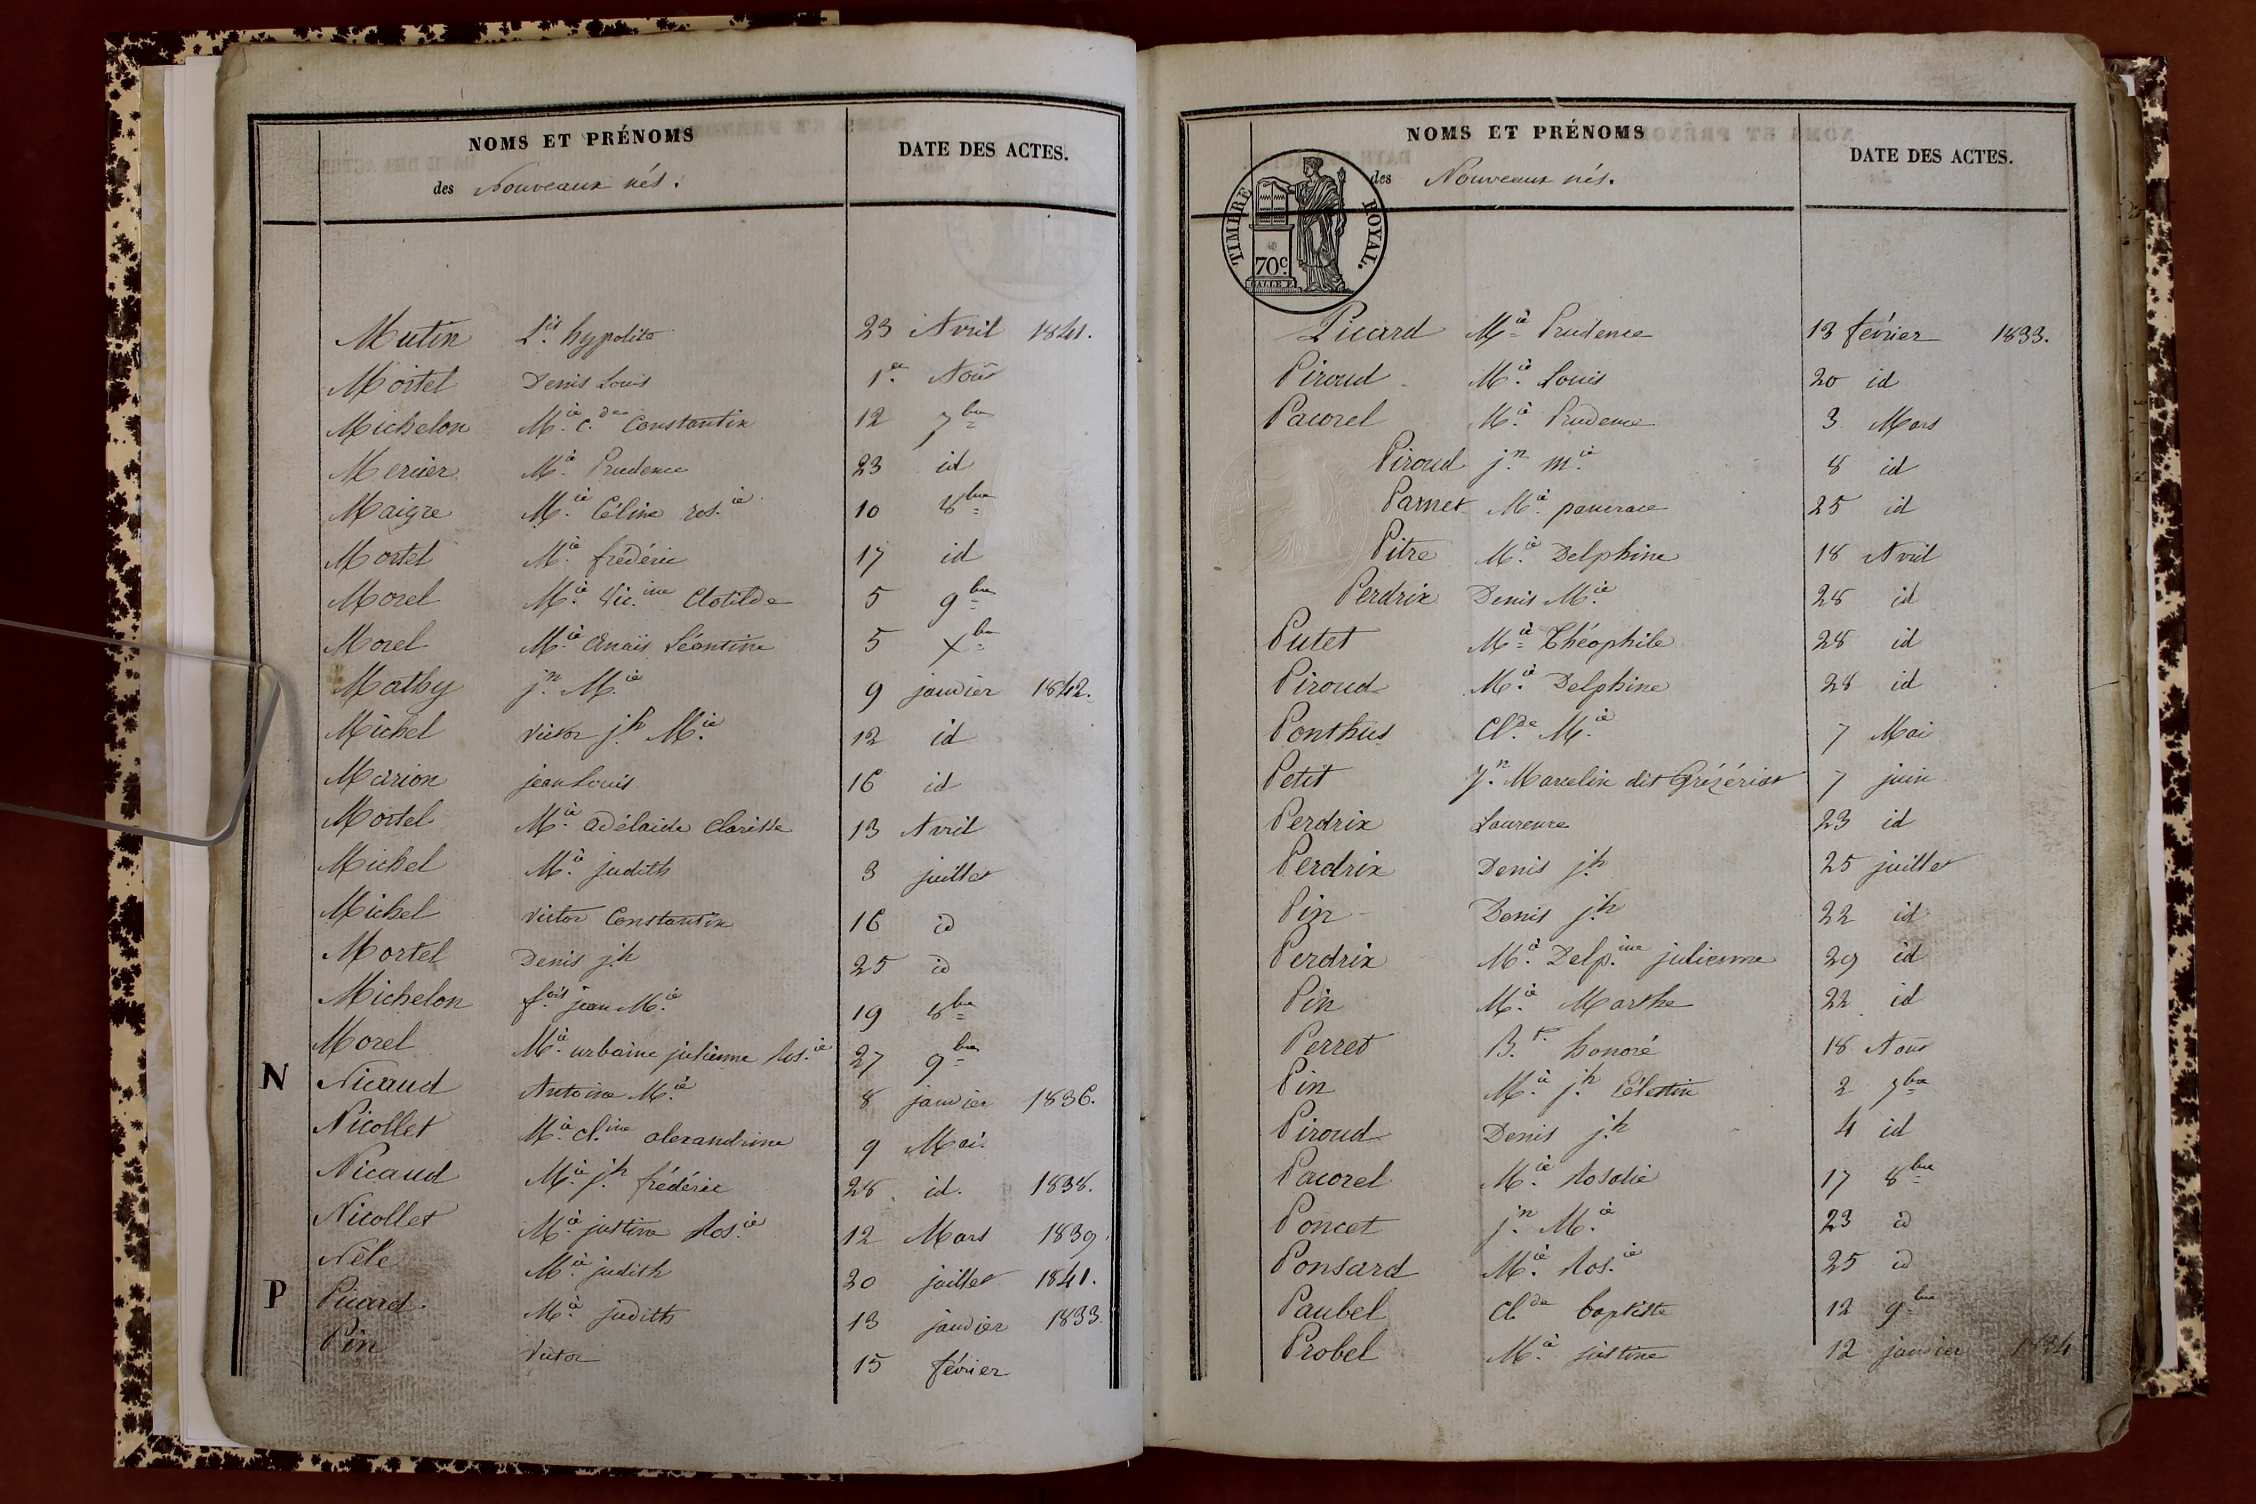 NOMS ET PRÉNOMS
des Nouveaux nés.
DATE DES ACTES.
Mutin L.is hypolite 23 Avril 1841.
Mortel Denis Louis 1.er Août
Michelon M.ie C.de Constantin 12 7bre
Mercier M.ie Prudence 23 id
Maigre M.ie Céline ros.ie 10 8bre
Mortel M.ie frédéric 17 id
Morel M.ie Vic.ine Clotilde 5 9bre
Morel M.ie Anaïs Léontine 5 Xbre
Mathy j.n M.ie 9 janvier 1842.
Michel Victor j.h M.ie 12 id
Marion jean Louis 16 id
Mortel M.ie adélaide Clarisse 13 Avril
Michel M.ie judith 3 juillet
Michel Victor Constantin 16 id
Mortel Denis j.h 25 id
Michelon f.ois jean M.ie 19 8bre
Morel M.ie urbaine julienne Ros.ie 27 9bre
N Nicaud Antoine M.ie 8 janvier 1836.
Nicollet M.ie cl.ine alexandrine 9 Mai.
Nicaud M.ie j.h frédéric 28 id. 1838.
Nicollet M.ie justine Ros.ie 12 Mars 1839.
Nèle M.ie judith 20 juillet 1841.
P Picard M.ie judith 13 janvier 1833.
Pin Victor 15 février
NOMS ET PRÉNOMS
des Nouveaux nés.
DATE DES ACTES.
TIMBRE ROYAL.
70c.
Picard M.ie Prudence 13 février 1833.
Piroud M.ie Louis 20 id
Pacorel M.ie Prudence 3 Mars
Piroud j.n m.ie 8 id
Parnet M.ie pancrace 25 id
Pitre M.ie Delphine 18 Avril
Perdrix Denis M.ie 28 id
Putet M.ie Théophile 28 id
Piroud M.ie Delphine 28 id
Ponthus Cl.de M.ie 7 Mai
Petit J.n Marcelin dit Grézériat 7 juin
Perdrix Laurence 23 id
Perdrix Denis j.h 25 juillet
Pin Denis j.h 22 id
Perdrix M.ie Delp.ine julienne 29 id
Pin M.ie Marthe 22 id
Perret B.te honoré 18 Août
Pin M.ie j.h Célestin 2 7bre
Piroud Denis j.h 4 id
Pacorel M.ie Rosalie 17 8bre
Poncet j.n M.ie 23 id
Ponsard M.ie Ros.ie 25 id
Paubel Cl.de baptiste 12 9bre
Probel M.ie justine 12 janvier 1834